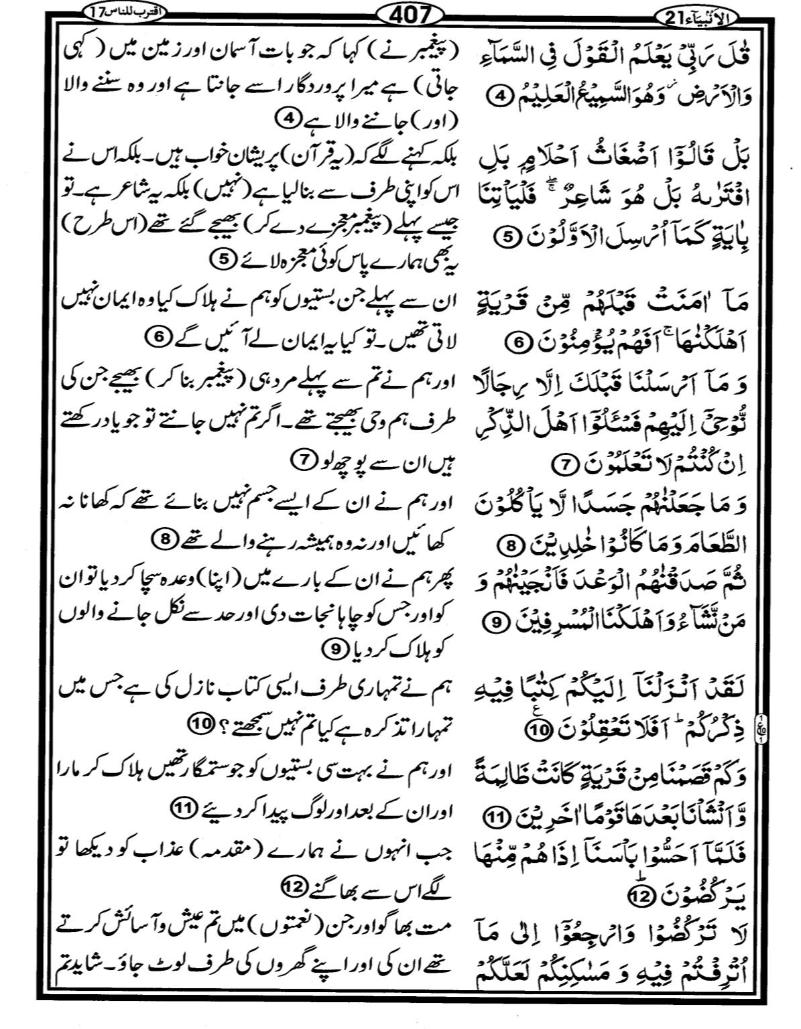 الأنبيآء 21
407
اقترب للناس 17
قٰلَ رَبِّىْ يَعْلَمُ الْقَوْلَ فِى السَّمَآءِ
وَالْاَرْضِ ۫ وَهُوَ السَّمِيْعُ الْعَلِيْمُ ④
بَلْ قَالُوْٓا اَضْغَاثُ اَحْلَامٍۭ بَلِ
افْتَرٰىهُ بَلْ هُوَ شَاعِرٌ ۖۚ فَلْيَاْتِنَا
بِاٰيَةٍ كَمَآ اُرْسِلَ الْاَوَّلُوْنَ ⑤
مَآ اٰمَنَتْ قَبْلَهُمْ مِّنْ قَرْيَةٍ
اَهْلَكْنٰهَا ۚ اَفَهُمْ يُؤْمِنُوْنَ ⑥
وَ مَآ اَرْسَلْنَا قَبْلَكَ اِلَّا رِجَالًا
نُّوْحِىْٓ اِلَيْهِمْ فَسْئَلُوْٓا اَهْلَ الذِّكْرِ
اِنْ كُنْتُمْ لَا تَعْلَمُوْنَ ⑦
وَ مَا جَعَلْنٰهُمْ جَسَدًا لَّا يَاْكُلُوْنَ
الطَّعَامَ وَمَا كَانُوْا خٰلِدِيْنَ ⑧
ثُمَّ صَدَقْنٰهُمُ الْوَعْدَ فَاَنْجَيْنٰهُمْ وَ
مَنْ نَّشَآءُ وَاَهْلَكْنَا الْمُسْرِفِيْنَ ⑨
لَقَدْ اَنْزَلْنَآ اِلَيْكُمْ كِتٰبًا فِيْهِ
ذِكْرُكُمْ ؕ اَفَلَا تَعْقِلُوْنَ ⑩ ع
وَكَمْ قَصَمْنَا مِنْ قَرْيَةٍ كَانَتْ ظَالِمَةً
وَّاَنْشَاْنَا بَعْدَهَا قَوْمًا اٰخَرِيْنَ ⑪
فَلَمَّآ اَحَسُّوْا بَاْسَنَآ اِذَا هُمْ مِّنْهَا
يَرْكُضُوْنَ ؕ ⑫
لَا تَرْكُضُوْا وَارْجِعُوْٓا اِلٰى مَآ
اُتْرِفْتُمْ فِيْهِ وَ مَسٰكِنِكُمْ لَعَلَّكُمْ
(پیغمبر نے) کہا کہ جو بات آسمان اور زمین میں (کہی
جاتی) ہے میرا پروردگار اسے جانتا ہے اور وہ سننے والا
(اور) جاننے والا ہے ④
بلکہ کہنے لگے کہ (یہ قرآن) پریشان خواب ہیں۔ بلکہ اس نے
اس کو اپنی طرف سے بنا لیا ہے (نہیں) بلکہ یہ شاعر ہے۔ تو
جیسے پہلے (پیغمبر معجزے دے کر) بھیجے گئے تھے (اس طرح)
یہ بھی ہمارے پاس کوئی معجزہ لائے ⑤
ان سے پہلے جن بستیوں کو ہم نے ہلاک کیا وہ ایمان نہیں
لاتی تھیں۔ تو کیا یہ ایمان لے آئیں گے ⑥
اور ہم نے تم سے پہلے مرد ہی (پیغمبر بنا کر) بھیجے جن کی
طرف ہم وحی بھیجتے تھے۔ اگر تم نہیں جانتے تو جو یاد رکھتے
ہیں ان سے پوچھ لو ⑦
اور ہم نے ان کے ایسے جسم نہیں بنائے تھے کہ کھانا نہ
کھائیں اور نہ وہ ہمیشہ رہنے والے تھے ⑧
پھر ہم نے ان کے بارے میں (اپنا) وعدہ سچا کر دیا تو ان
کو اور جس کو چاہا نجات دی اور حد سے نکل جانے والوں
کو ہلاک کر دیا ⑨
ہم نے تمہاری طرف ایسی کتاب نازل کی ہے جس میں
تمہارا تذکرہ ہے کیا تم نہیں سمجھتے؟ ⑩
اور ہم نے بہت سی بستیوں کو جو ستمگار تھیں ہلاک کر مارا
اور ان کے بعد اور لوگ پیدا کر دیئے ⑪
جب انہوں نے ہمارے (مقدمہ) عذاب کو دیکھا تو
لگے اس سے بھاگنے ⑫
مت بھاگو اور جن (نعمتوں) میں تم عیش و آسائش کرتے
تھے ان کی اور اپنے گھروں کی طرف لوٹ جاؤ۔ شاید تم